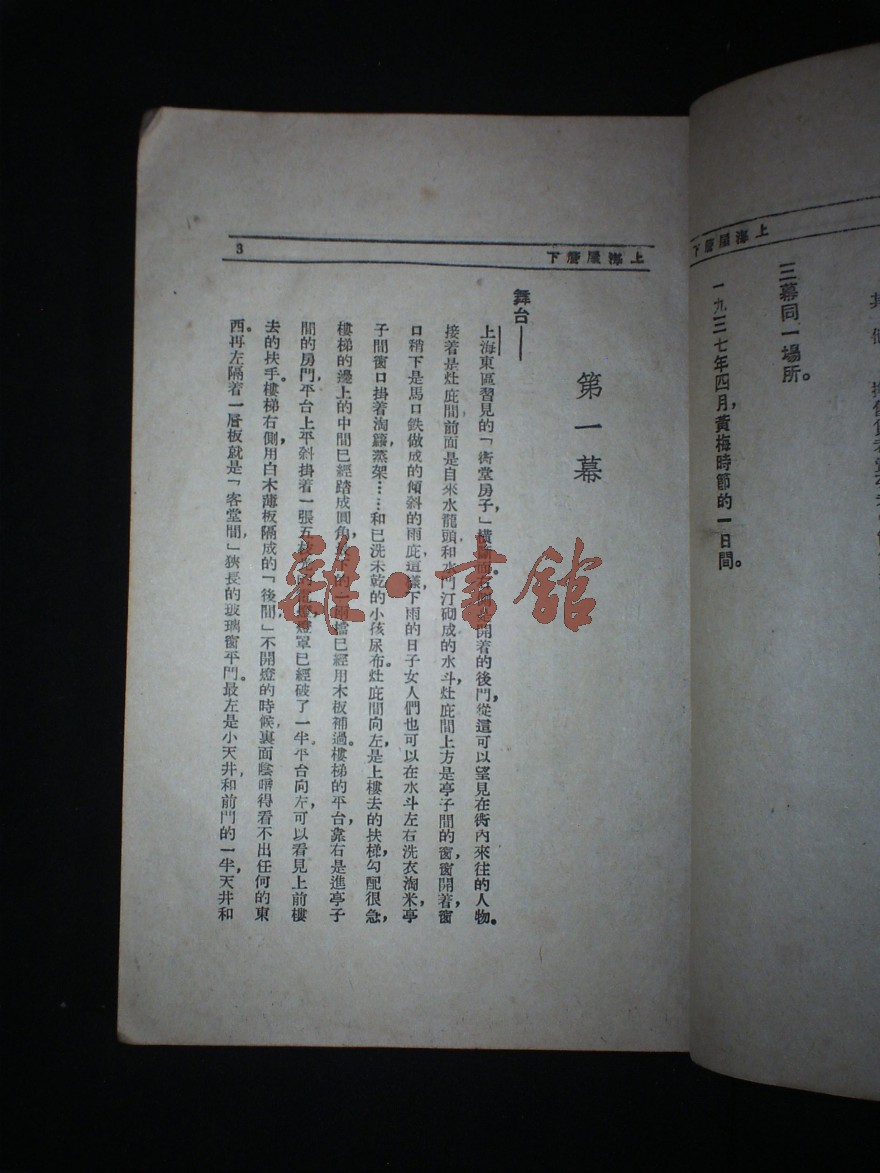 上海屋簷下
其 他
三幕同一場所。
一九三七年四月,黃梅時節的一日間。
上海屋簷下
3
第一幕
舞台——
上海東區習見的「衖堂房子,」橫斷面。右側是開着的後門,從這可以望見在衖內來往的人物。
接着是灶庇間前面是自來水龍頭和水門汀砌成的水斗,灶庇間上方是亭子間的窗,窗開着,窗
口稍下是馬口鉄做成的傾斜的雨庇,這樣,下雨的日子女人們也可以在水斗左右洗衣淘米,亭
子間窗口掛着淘籮,蒸架……和已洗未乾的小孩尿布。灶庇間向左,是上樓去的扶梯,勾配很急,
樓梯的邊上的中間已經踏成圓角,最下的一兩檔已經用木板補過。樓梯的平台,靠右是進亭子
間的房門,平台上平斜掛着一張五枝光的電燈,燈罩已經破了一半。平台向左,可以看見上前樓
去的扶手。樓梯右側,用白木薄板隔成的「後間」不開燈的時候,裏面陰暗得看不出任何的東
西。再左隔着一層板就是「客堂間」狹長的玻璃窗平門。最左是小天井,和前門的一半,天井和
雜·書館